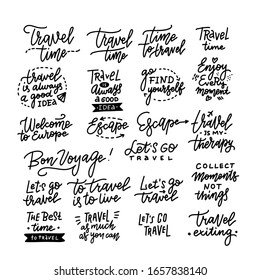 Travel
time
Travel
time
Time
to travel
Travel
time
travel
is always
a good
IDEA
TRAVEL
is always
A GOOD
IDEA
go
FIND
yourself
Enjoy
Every
moment
Welcome
to Europe
Escape
Escape
travel
IS MY
therapy
Bon Voyage!
Let's GO
TRAVEL
COLLECT
MOMENTS
NOT
things
Let's go
travel
to travel
is to live
Let's go
travel
THE BEST
time
TO TRAVEL
TRAVEL
as much
AS YOU CAN
LET'S GO
TRAVEL
travel
exiting
shutterstock.com · 1657838140